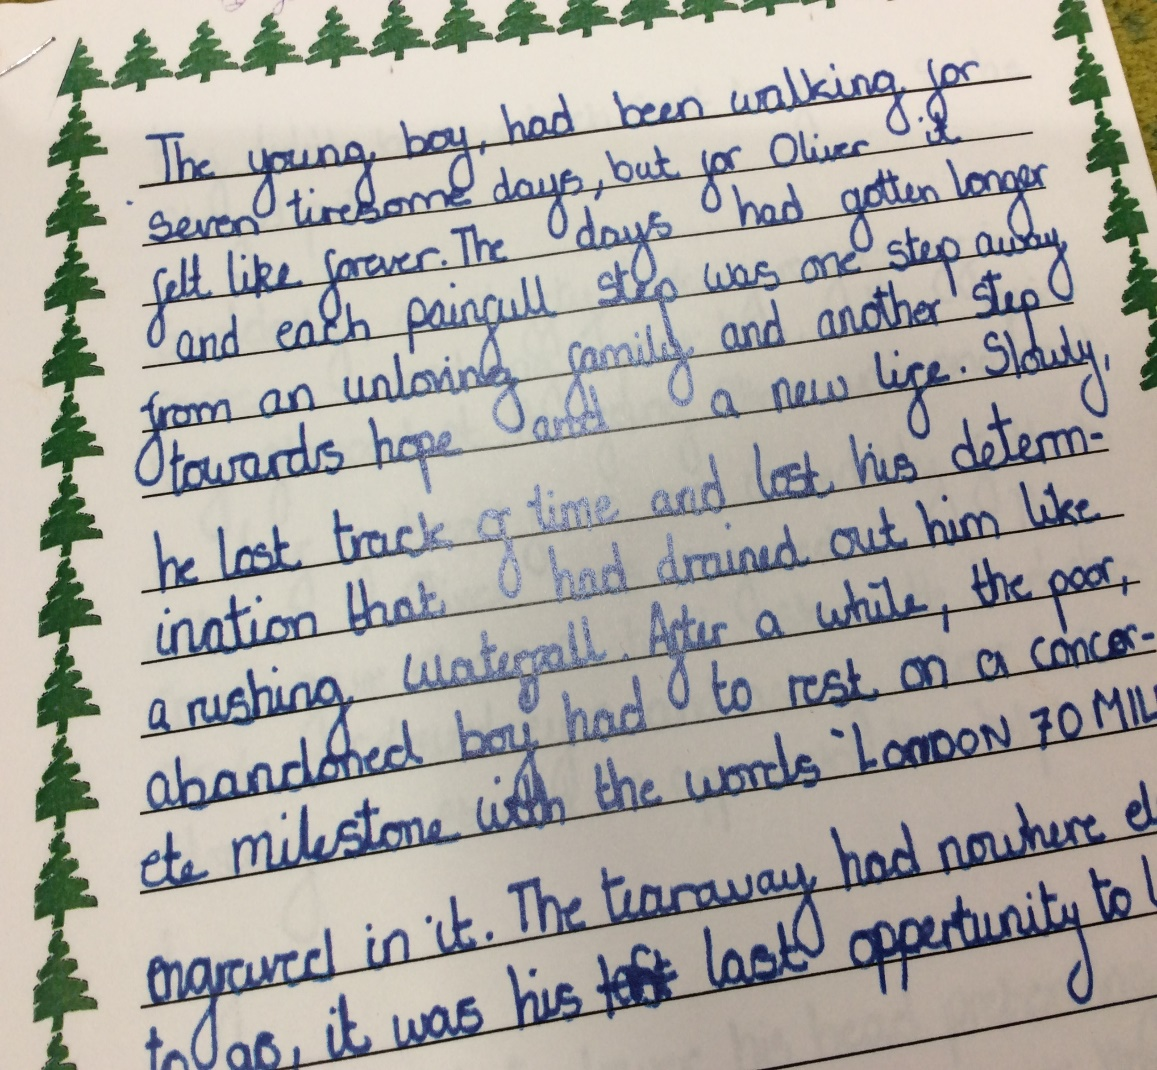 The young boy, had been walking for
seven tiresome days, but for Oliver it
felt like forever. The days had gotten longer
and each painfull step was one step away
from an unloving family and another step
towards hope and a new life. Slowly,
he lost track of time and lost his determ-
ination that had drained out him like
a rushing waterfall. After a while, the poor,
abandoned boy had to rest on a concer-
ete milestone with the words "LONDON 70 MIL
engraved in it. The tearaway had nowhere el
to go, it was his last oppertunity to l